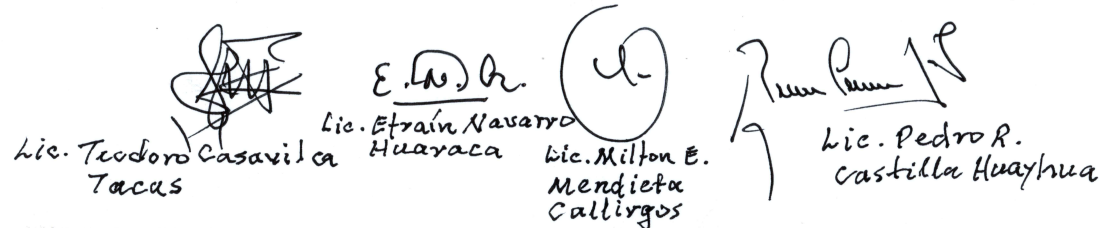 E. N. R.
Lic. Teodoro Casavilca
Tacas
Lic. Efraín Navarro
Huaraca
Lic. Milton E.
Mendieta
Callirgos
Lic. Pedro R.
Castilla Huayhua